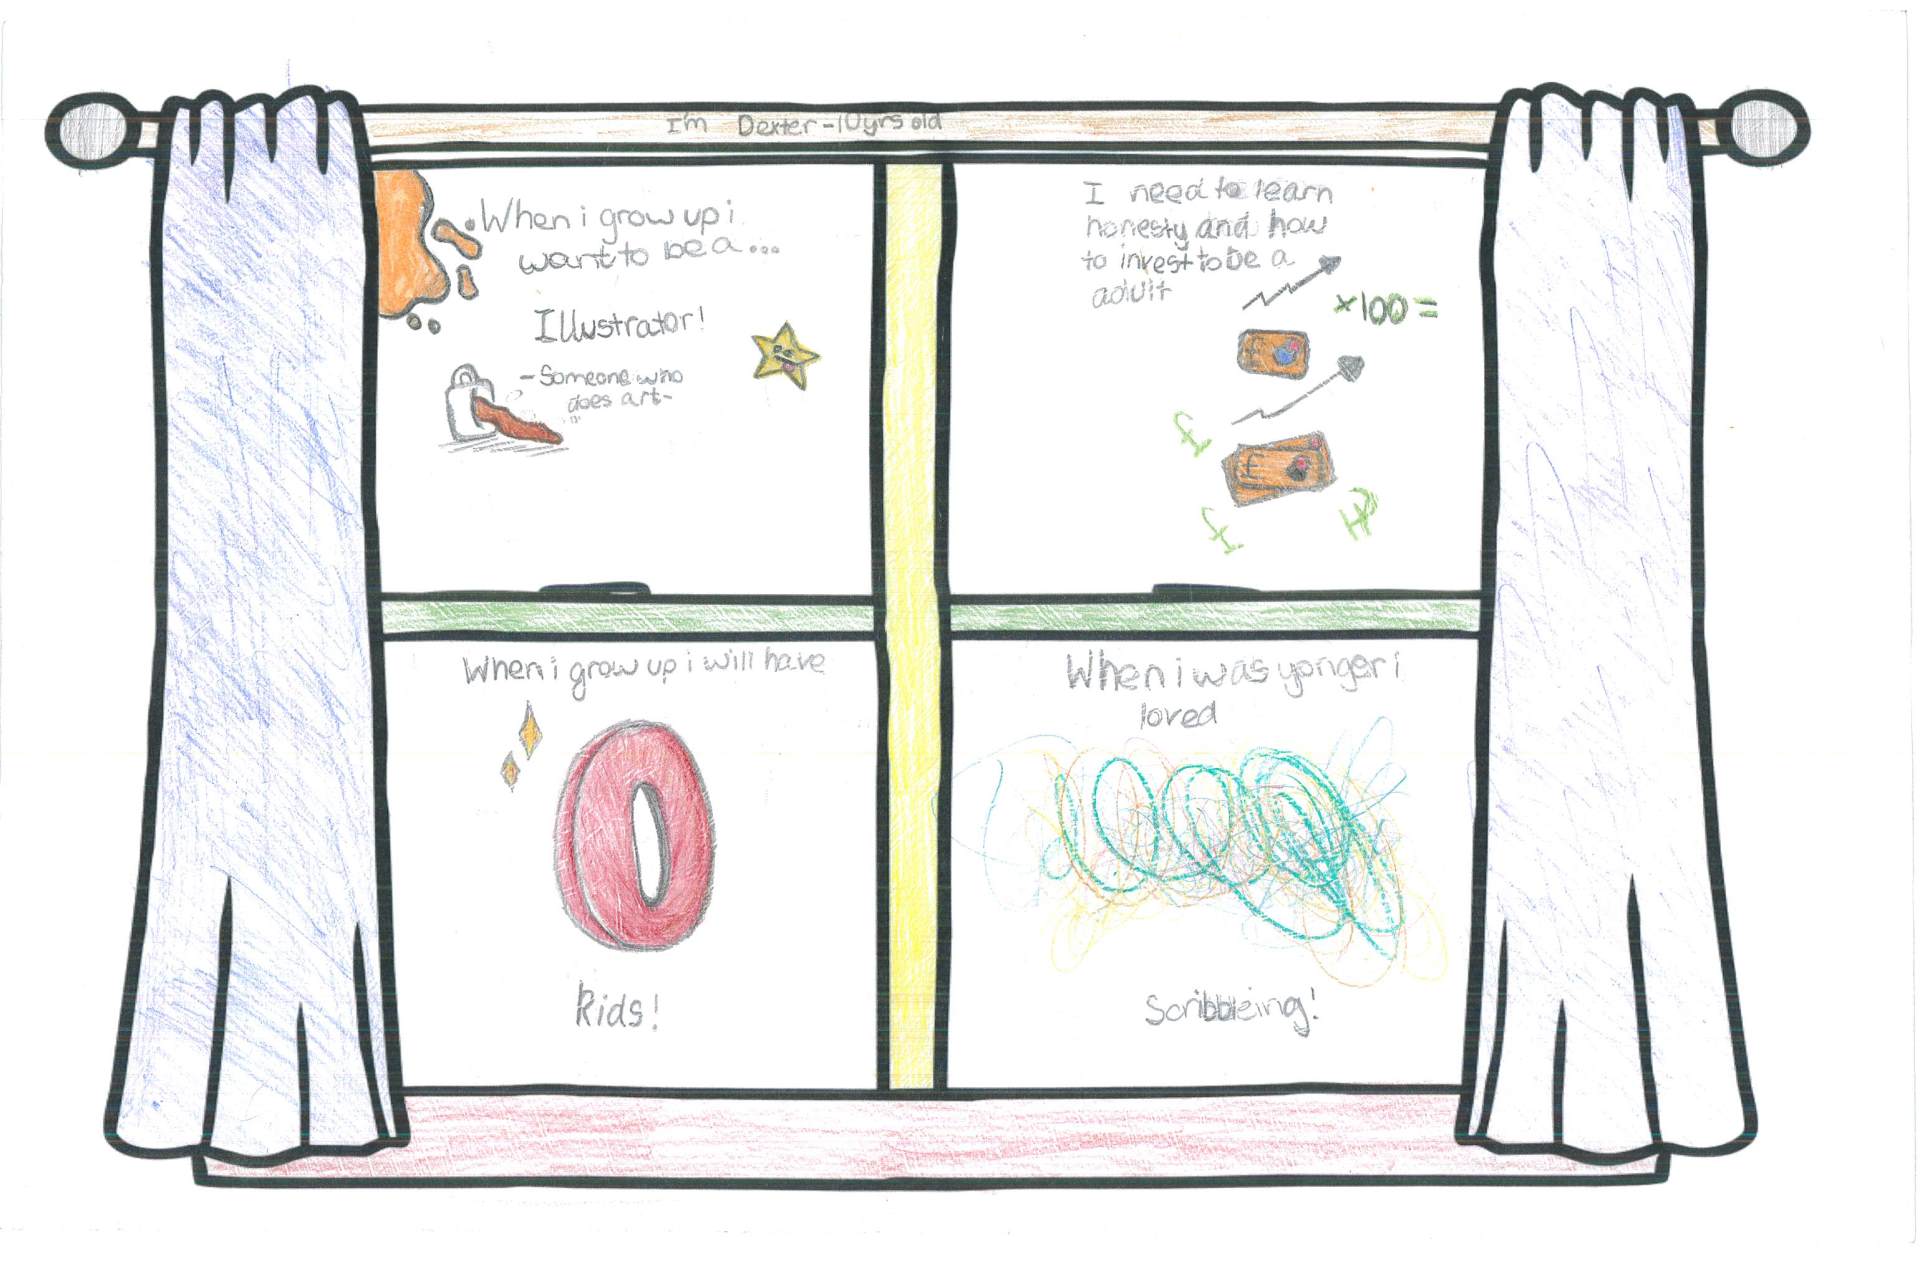 I'm Dexter-10yrs old
When i grow up i
want to be a...
Illustrator!
-Someone who
does art-
I need to learn
honesty and how
to invest to be a
adult
×100=
£
£
£
£
When i grow up i will have
0
Kids!
When i was yonger i
loved
Scribbleing!